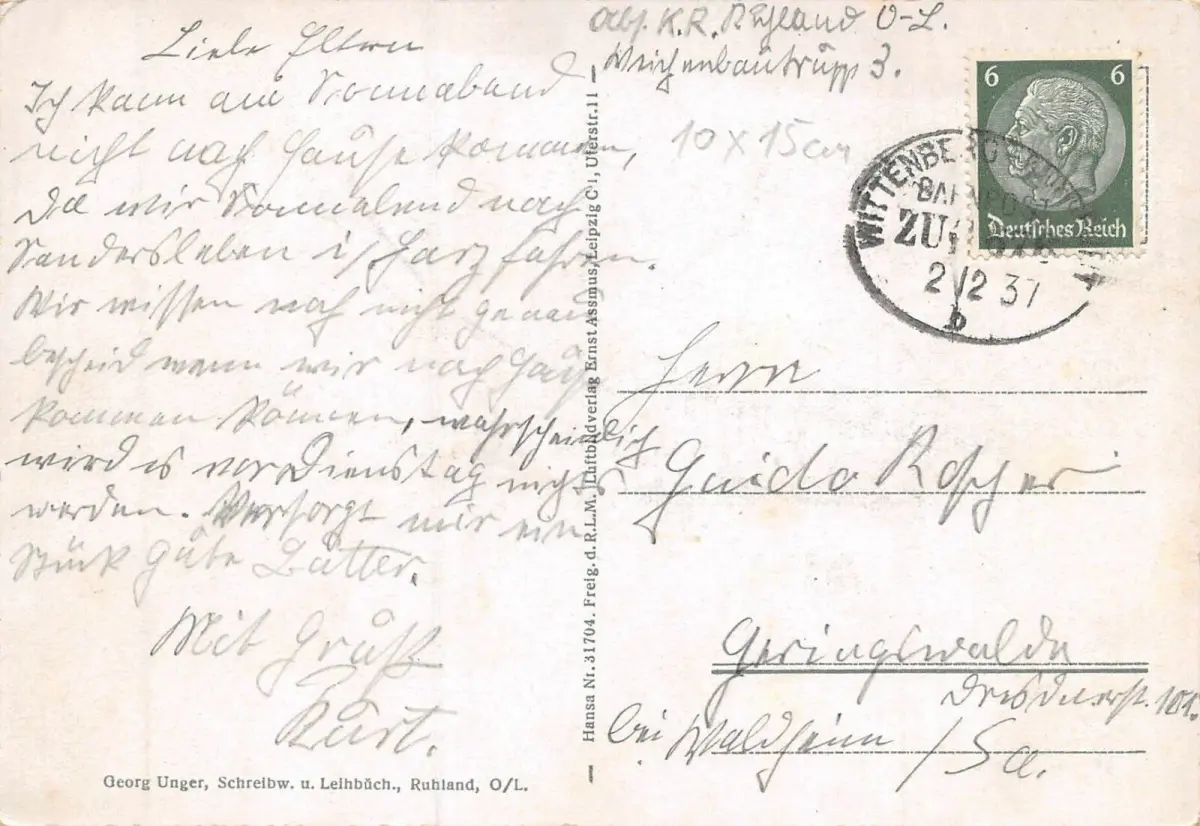 Liebe Eltern
Ich kann am Sonnabend
nicht nach Hause kommen,
da wir Sonnabend nach
Sandersleben i/Harz fahren.
Wir wissen noch nicht genau
bescheid wenn wir nach Haus
kommen können, wahrscheinlich
wird es vor Dienstag nichts
werden. Versorgt mir ein
Stück gute Butter.
Mit Gruß
Kurt.
Georg Unger, Schreibw. u. Leihbüch., Ruhland, O/L.
Hansa Nr. 31704. Freig. d. R.L.M. Luftbildverlag Ernst Assmus, Leipzig C 1, Uferstr. 11
Abs. K. R. Ruhland O-L.
Weichenbautrupp 3.
10 x 15cm
6 6
Deutsches Reich
WITTENBERG
BAHNPOST
ZUG
2 12 37
b
Herrn
Guido Roscher
Geringswalde
Dresdnerst. 101.
bei Waldheim /Sa.